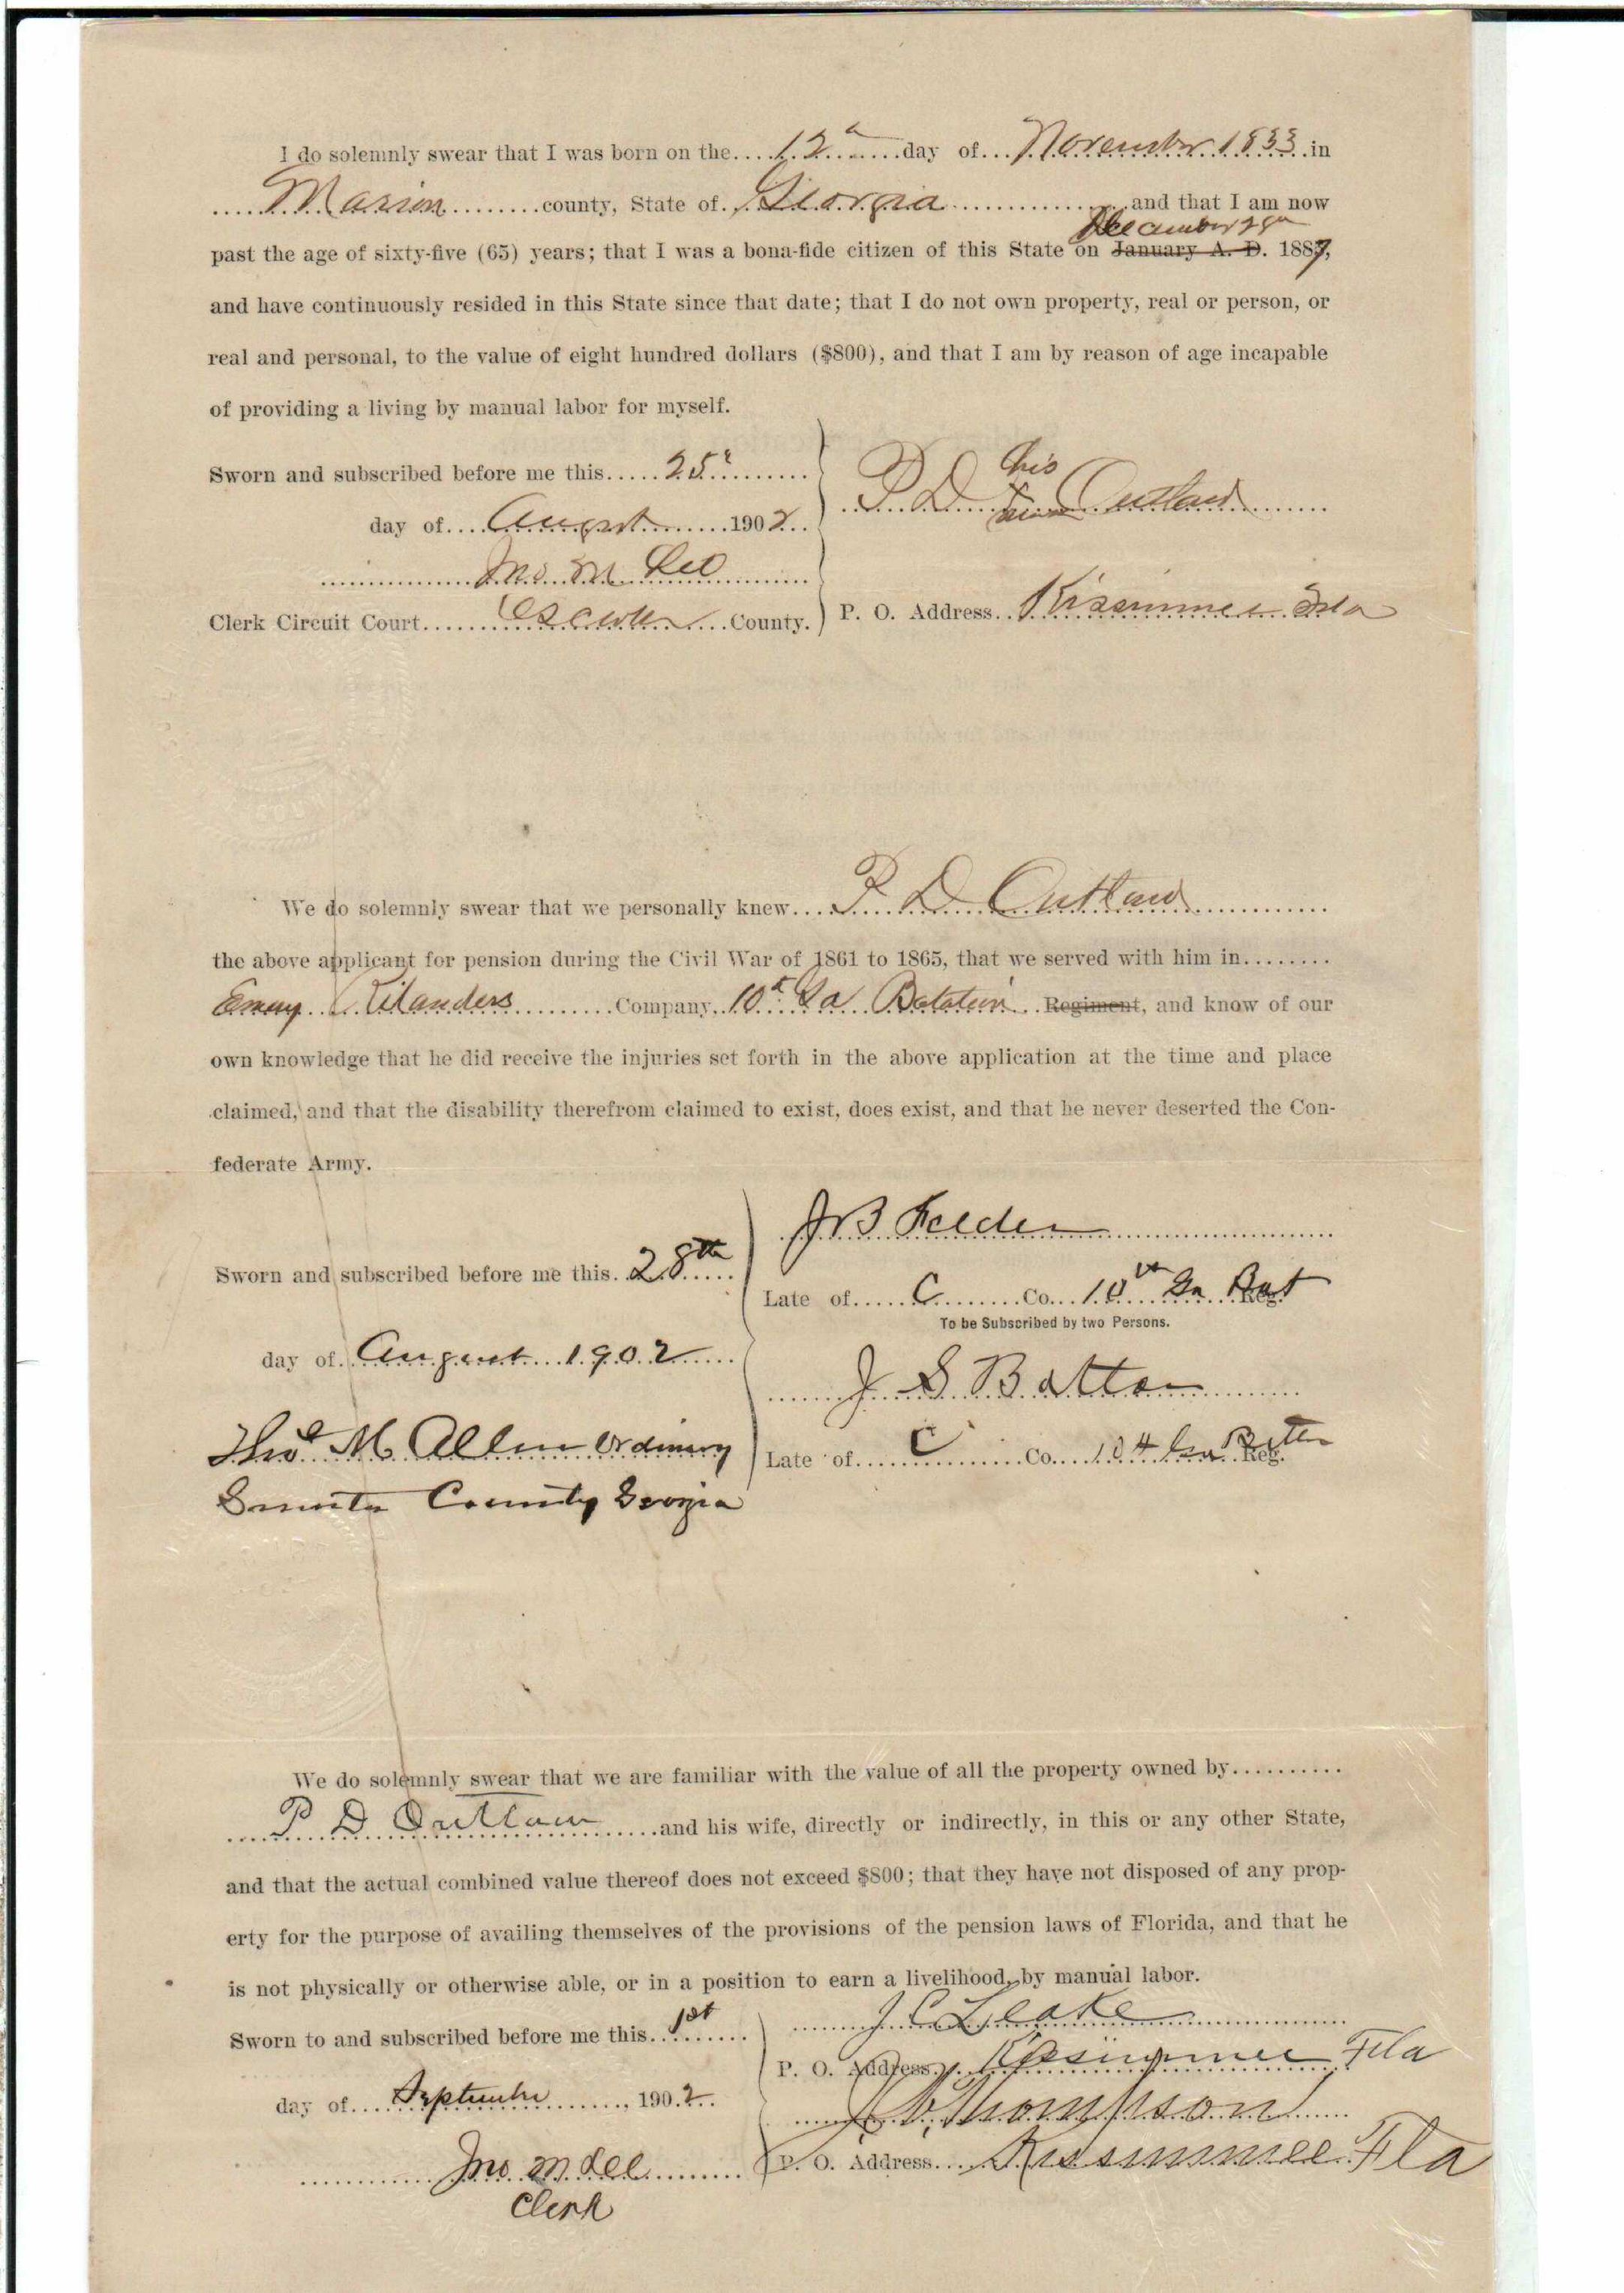 I do solemnly swear that I was born on the 12th day of November 1833 in
Marion county, State of Georgia and that I am now
December 28th
past the age of sixty-five (65) years; that I was a bona-fide citizen of this State on January A. D. 1887,
and have continuously resided in this State since that date; that I do not own property, real or person, or
real and personal, to the value of eight hundred dollars ($800), and that I am by reason of age incapable
of providing a living by manual labor for myself.
Sworn and subscribed before me this 25th
day of August 1902
P D his x mark Outlaw
Jno M Lee
Clerk Circuit Court Osceola County.
P. O. Address Kissimmee Fla
We do solemnly swear that we personally knew P D Outlaw
the above applicant for pension during the Civil War of 1861 to 1865, that we served with him in
Company 10th Ga Batalion Regiment, and know of our
own knowledge that he did receive the injuries set forth in the above application at the time and place
claimed, and that the disability therefrom claimed to exist, does exist, and that he never deserted the Con-
federate Army.
J B Felder
Sworn and subscribed before me this 28th
Late of C Co. 10th Ga Bat Reg.
To be Subscribed by two Persons.
day of August 1902
J S Batton
Thos M Allen Ordinary
Late of C Co. 10th Ga Reg.
Sumter County Georgia
We do solemnly swear that we are familiar with the value of all the property owned by
P D Outlaw and his wife, directly or indirectly, in this or any other State,
and that the actual combined value thereof does not exceed $800; that they have not disposed of any prop-
erty for the purpose of availing themselves of the provisions of the pension laws of Florida, and that he
is not physically or otherwise able, or in a position to earn a livelihood, by manual labor.
J C Leake
Sworn to and subscribed before me this 1st
P. O. Address Kissimmee Fla
day of September, 1902
Thompson
Jno M Lee
P. O. Address Kissimmee Fla
Clerk